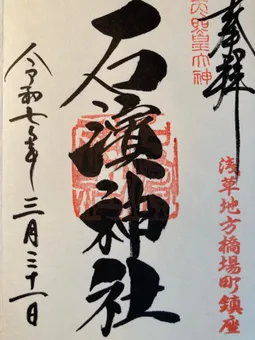 奉拝
浅草地方橋場町鎮座
石濱神社
令和七年三月三十一日